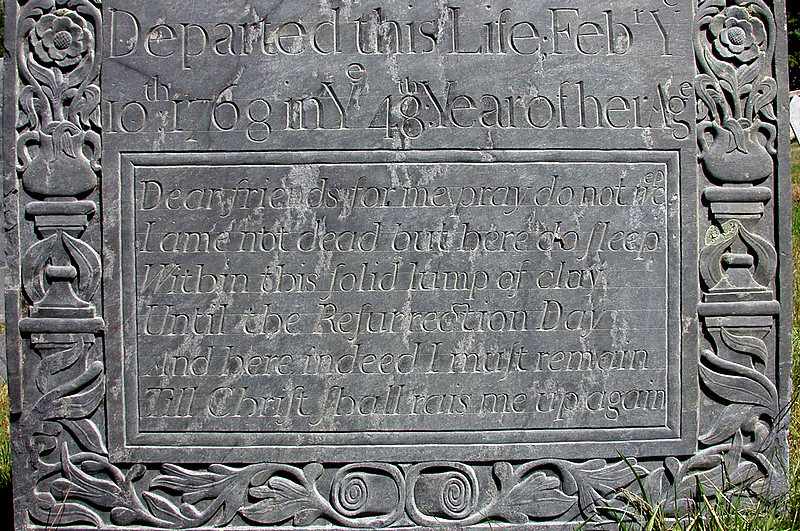 Departed this Life·Feb^r Y^e
10^th 1768 in Y^e 48^th· Year of her Age
Dear friends for me pray do not we^ep
I ame not dead but here do ſleep
Within this ſolid lump of clay
Until the Reſurrection Day
And here indeed I muſt remain
Till Chriſt ſhall rais me up again